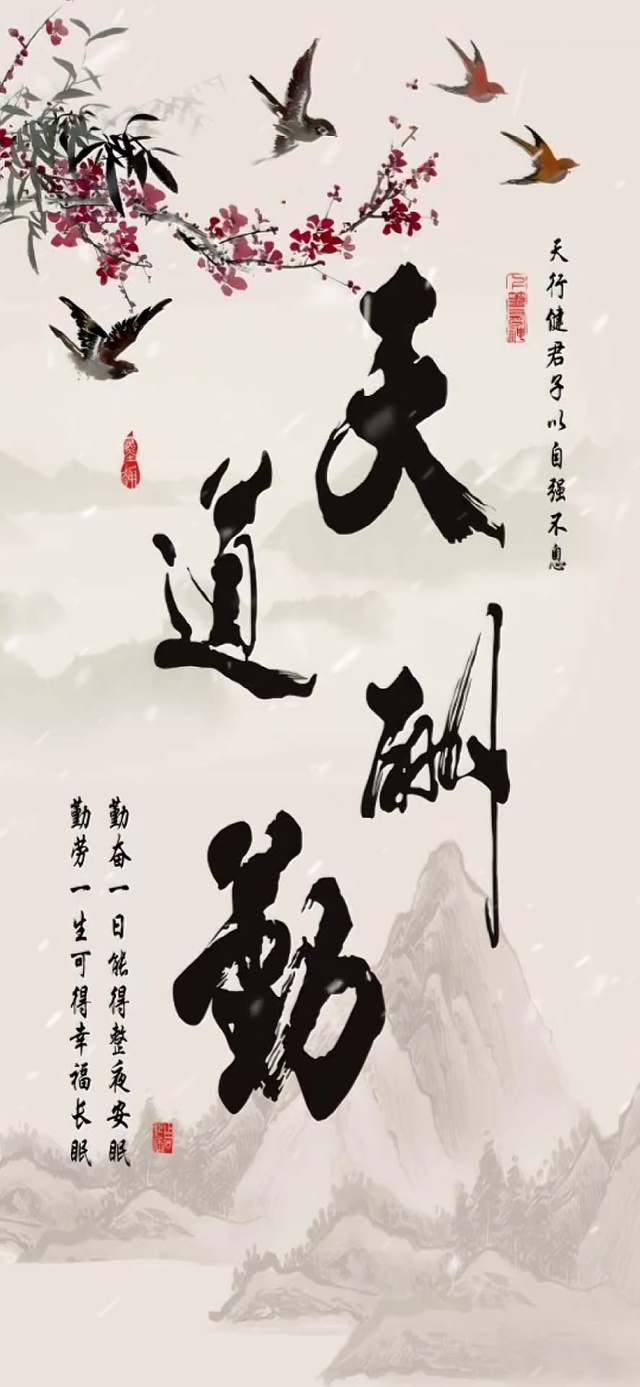 天行健君子以自强不息
天道酬勤
勤奋一日能得整夜安眠
勤劳一生可得幸福长眠